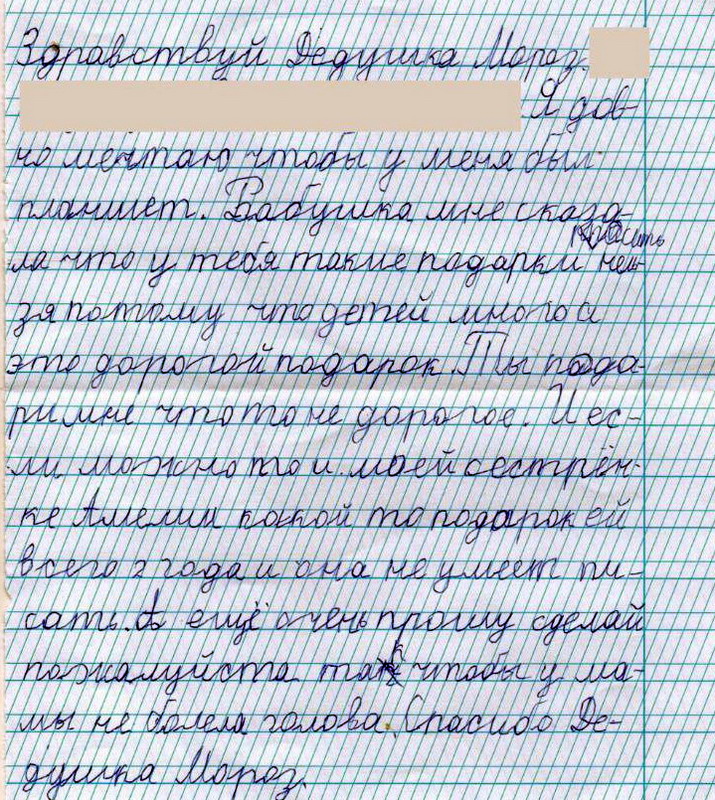 Здравствуй Дедушка Мороз.
Я дов-
но мечтаю чтобы у меня был
планшет. Бабушка мне сказа-
просить
ла что у тебя такие подарки нель-
зя потому что детей много а
это дорогой подарок. Ты пода-
ри мне что то не дорогое. И ес-
ли можно то и моей сестрён-
ке Амелии какой то подарок ей
всего 2 года и она не умеет пи-
сать. А ещё очень прошу сделай
пожалуйста так чтобы у ма-
мы не болела голова. Спасибо Де-
душка Мороз.